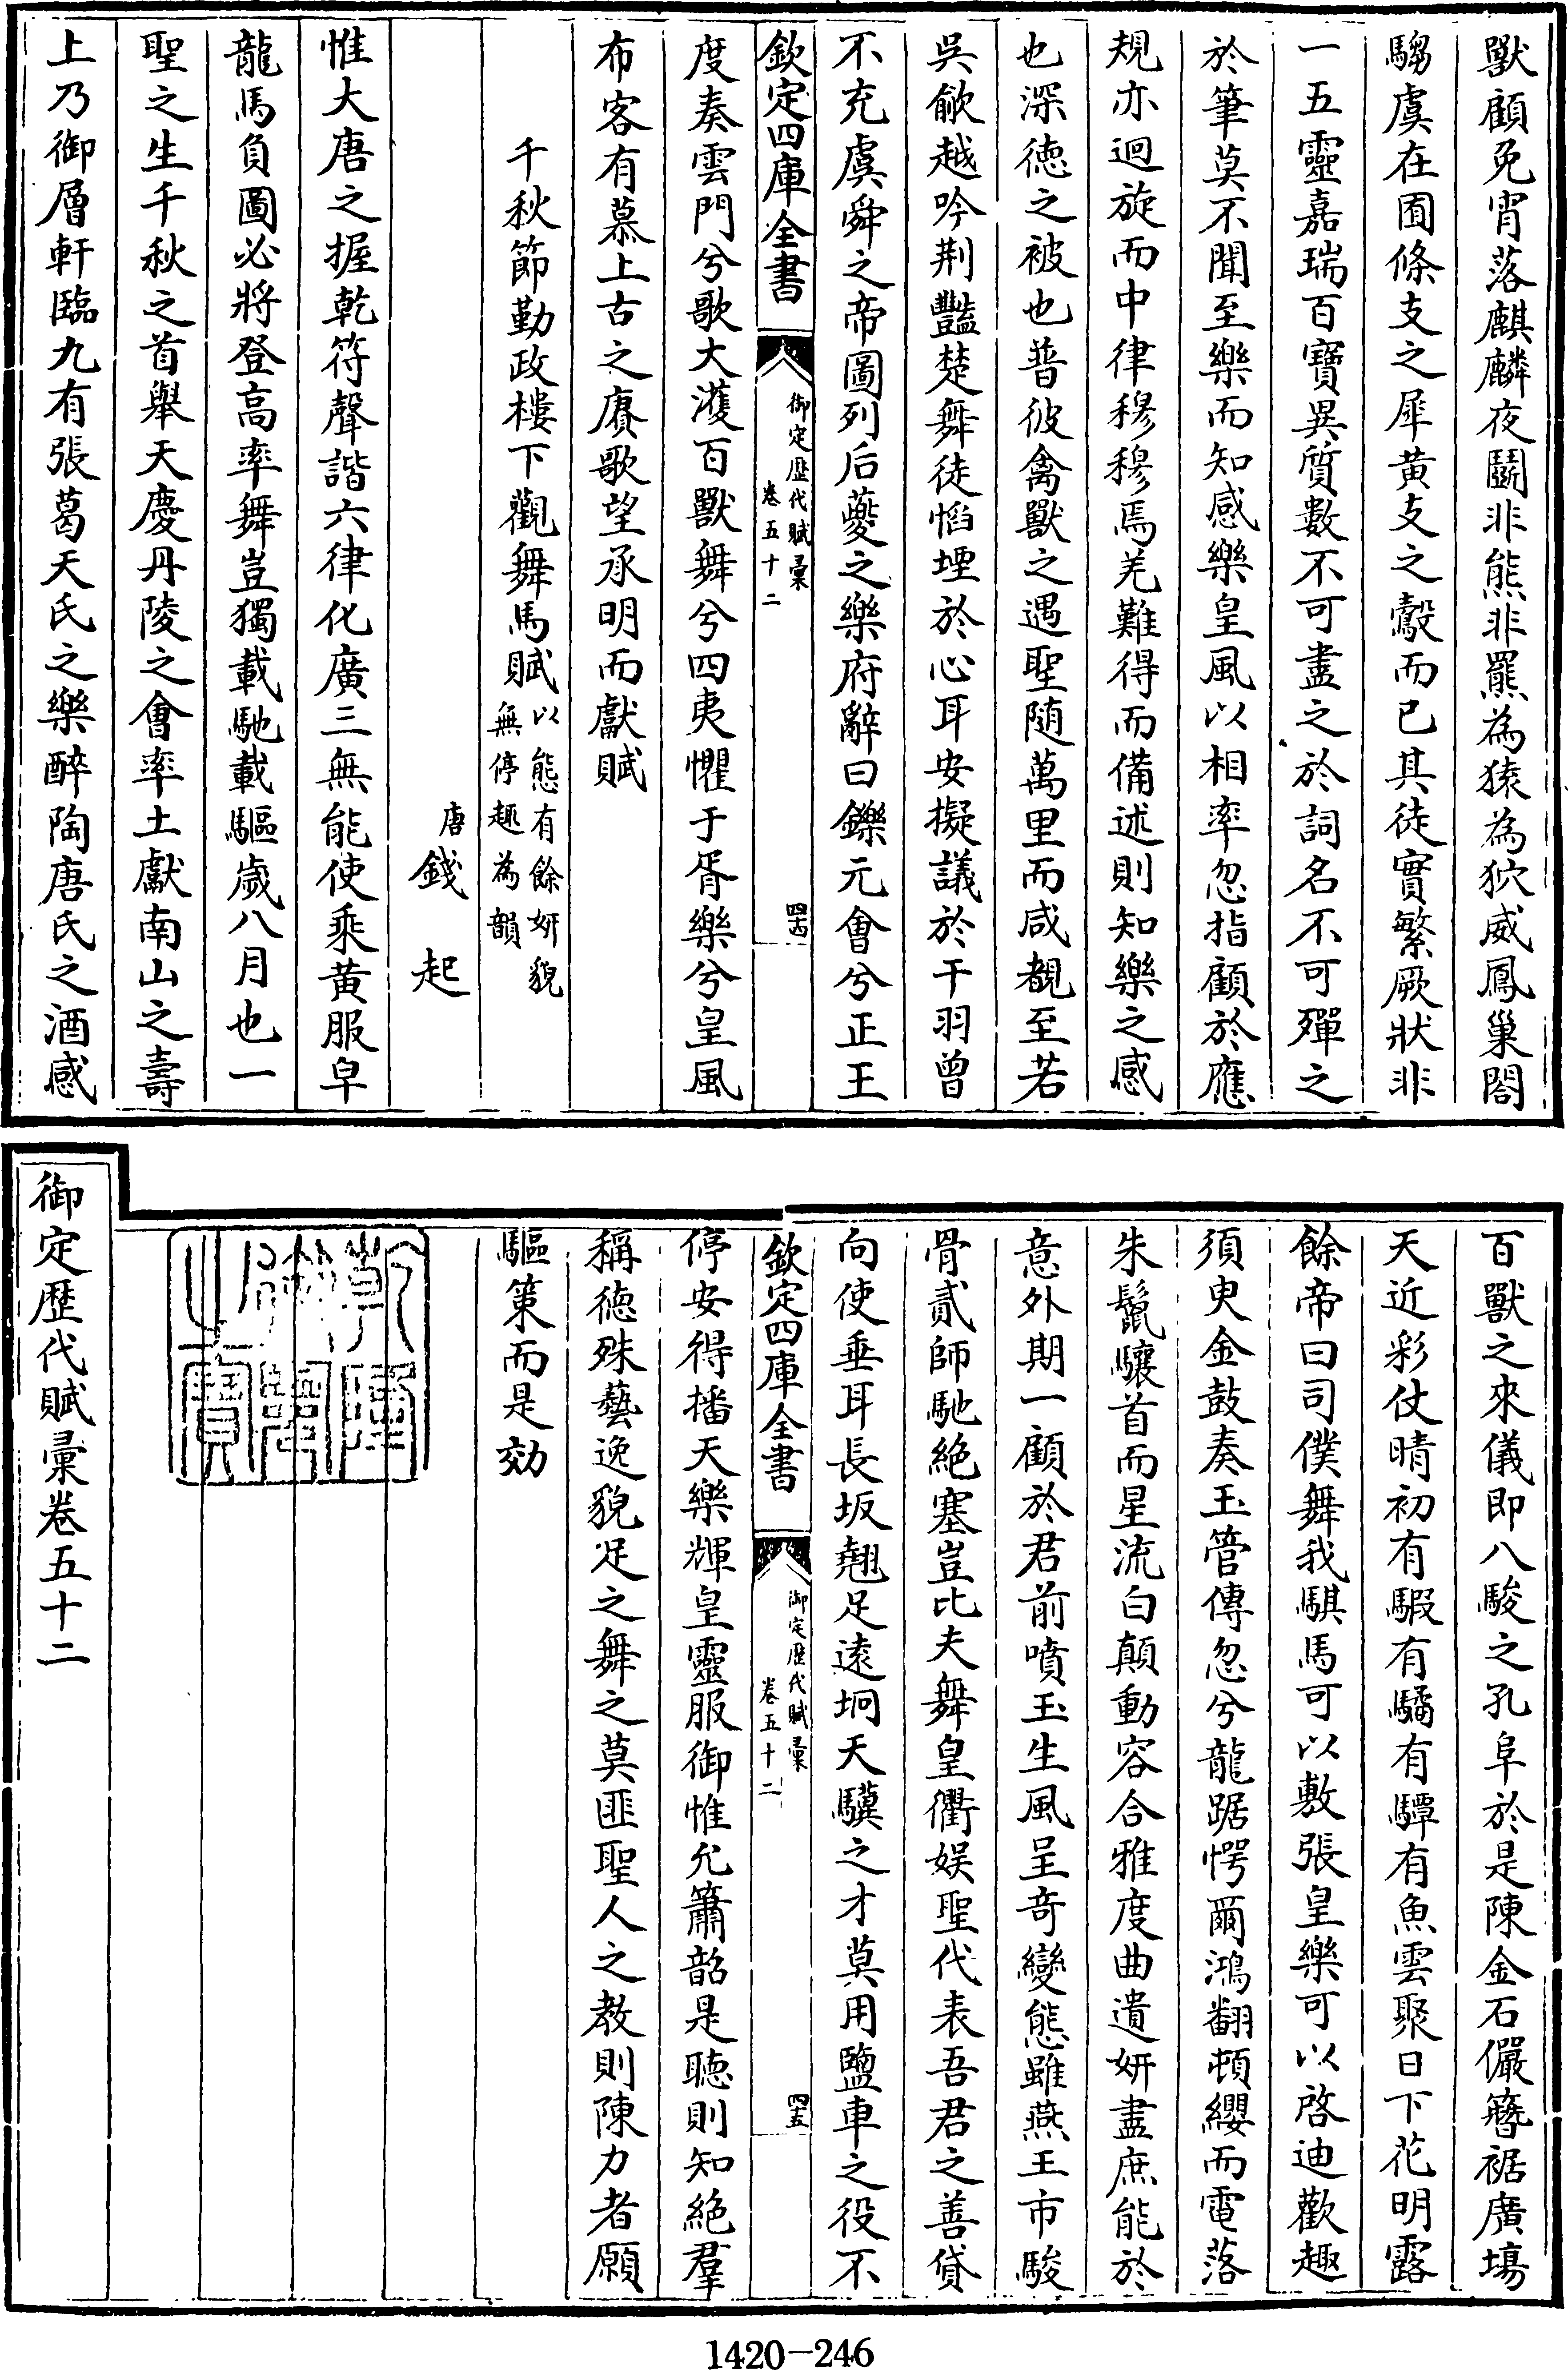 獸顧免宵落麒麟夜鬭非熊非羆為猿為狖威鳳巢閣
騶虞在囿條支之犀黃支之鷇而已其徒實繁厥狀非
一五靈嘉瑞百寶異質數不可盡之於詞名不可殫之
於筆莫不聞至樂而知感樂皇風以相率忽指顧於應
規亦迴旋而中律穆穆焉羌難得而備述則知樂之感
也深徳之被也普彼禽獸之遇聖随萬里而咸覩至若
吳歈越吟荆豔楚舞徒慆堙於心耳安擬議於干羽曾
不充虞舜之帝圖列后夔之樂府辭曰鑠元會兮正王
欽定四庫全書
御定歴代賦彚
卷五十二
四十四
度奏雲門兮歌大濩百獸舞兮四夷懼于胥樂兮皇風
布客有慕上古之賡歌望承明而獻賦
千秋節勤政樓下觀舞馬賦
以態有餘妍貌
無停趣為韻
唐錢起
惟大唐之握乾符聲諧六律化廣三無能使乘黃服皁
龍馬負圖必將登高率舞豈獨載馳載驅歲八月也一
聖之生千秋之首舉天慶丹陵之會率土獻南山之壽
上乃御層軒臨九有張葛天氏之樂醉陶唐氏之酒感
百獸之來儀即八駿之孔阜於是陳金石儼簪裾廣塲
天近彩仗晴初有騢有驈有驔有魚雲聚日下花明露
餘帝曰司僕舞我騏馬可以敷張皇樂可以啓迪歡趣
須臾金鼓奏玉管傳忽兮龍踞愕爾鴻翻頓纓而電落
朱鬛驤首而星流白顛動容合雅度曲遺妍盡庶能於
意外期一顧於君前噴玉生風呈竒變態雖燕王市駿
骨貳師馳絶塞豈比夫舞皇衢娱聖代表吾君之善貸
向使垂耳長坂翹足遠坰天驥之才莫用鹽車之役不
欽定四庫全書
御定歴代賦彚
卷五十二
四十五
停安得播天樂輝皇靈服御惟允簫韶是聴則知絶羣
稱徳殊藝逸貌足之舞之莫匪聖人之教則陳力者願
驅策而是効
乾隆御覽之寶
御定歴代賦彚卷五十二
1420-246